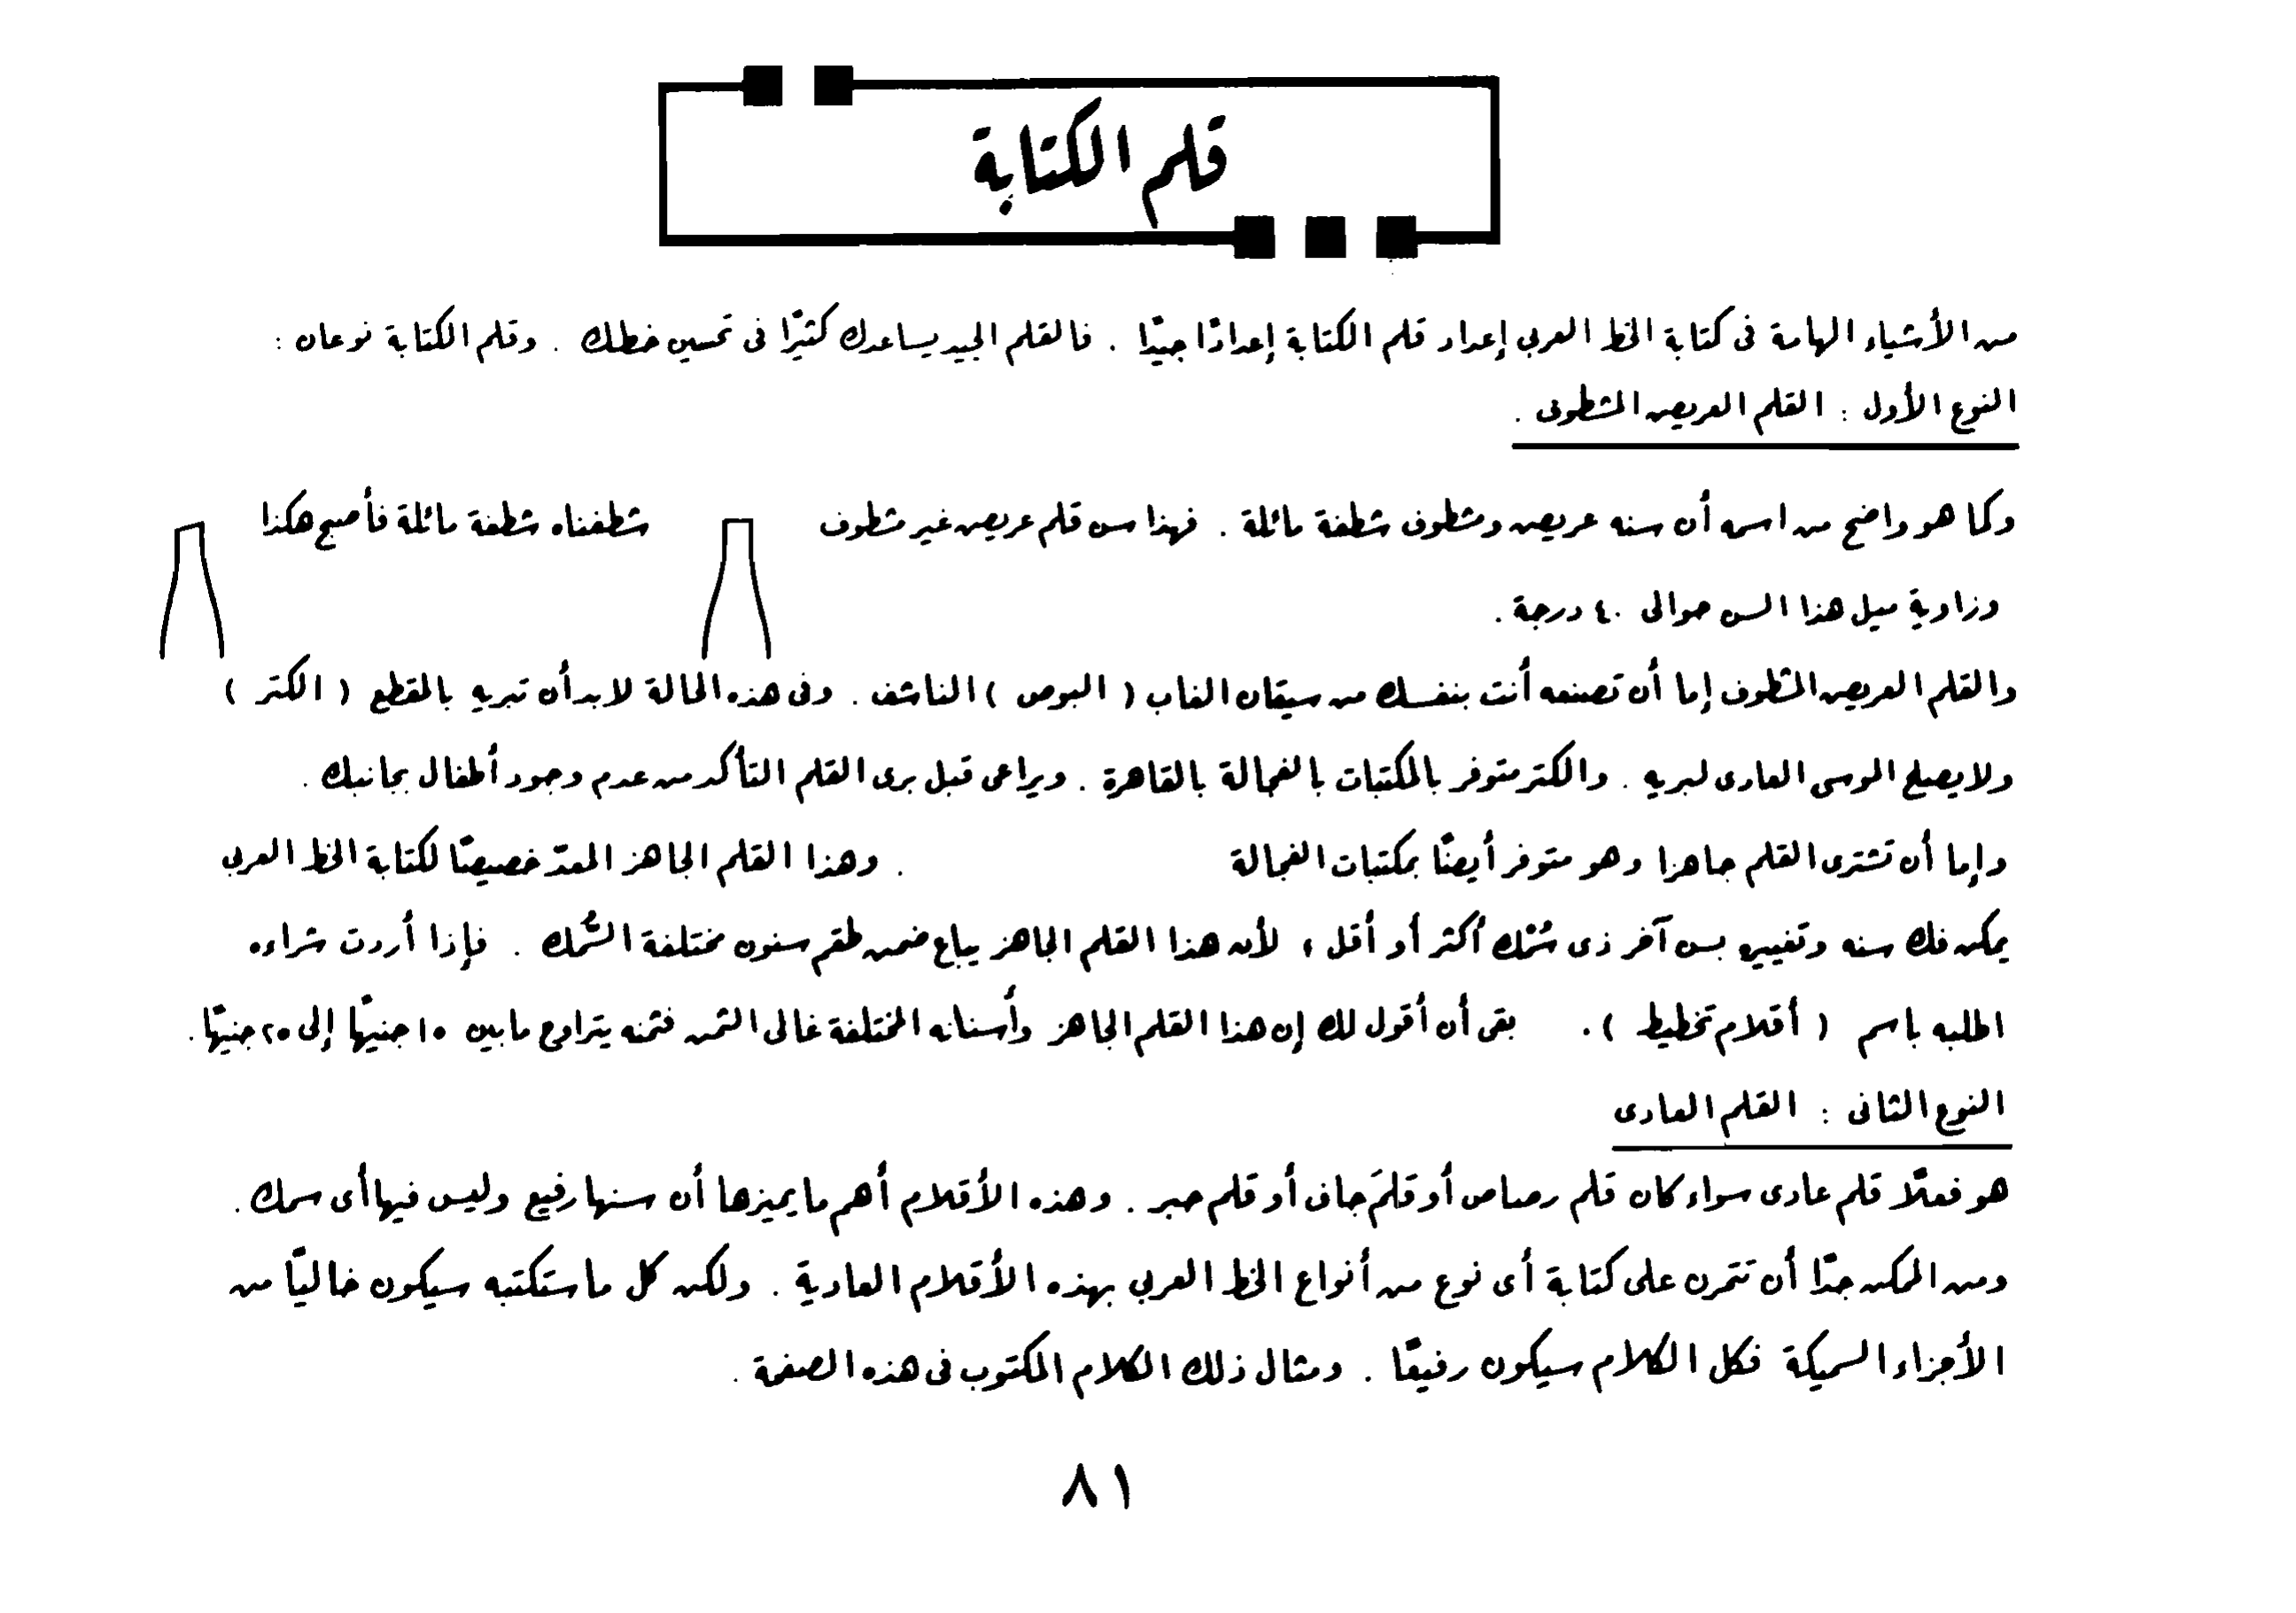 قلم الكتابة
من الأشياء الهامة فى كتابة الخط العربى إعداد قلم الكتابة إعدادًا جيدًا . فالقلم الجيد يساعدك كثيرًا فى تحسين خطك . وقلم الكتابة نوعان :
النوع الأول : القلم العريض المشطوف .
وكما هو واضح من اسمه أن سنه عريض ومشطوف شطفة مائلة . فهذا سن قلم عريض غير مشطوف شطفناه شطفة مائلة فأصبح هكذا
وزاوية ميل هذا السن حوالى ٤٠ درجة .
والقلم العريض المشطوف إما أن تصنعه أنت بنفسك من سيقان الغاب ( البوص ) الناشف . وفى هذه الحالة لابد أن تبريه بالمقطع ( الكتر )
ولا يصلح الموسى العادى لبريه . والكتر متوفر بالمكتبات بالفجالة بالقاهرة . ويراعى قبل برى القلم التأكد من عدم وجود أطفال بجانبك .
وإما أن تشترى القلم جاهزا وهو متوفر أيضًا بمكتبات الفجالة . وهذا القلم الجاهز المعدّ خصيصًا لكتابة الخط العربى
يمكن فك سنه وتغييره بسن آخر ذى سُمْك أكثر أو أقل ، لأن هذا القلم الجاهز يباع ضمن طقم سنون مختلفة السُّمك . فإذا أردت شراءه
اطلبه باسم ( أقلام تخطيط ) . بقى أن أقول لك إن هذا القلم الجاهز وأسنانه المختلفة غالى الثمن فثمنه يتراوح ما بين ١٥ جنيهًا إلى ٢٥ جنيهًا .
النوع الثانى : القلم العادى
هو فعلًا قلم عادى سواء كان قلم رصاص أو قلمَ جاف أو قلم حبر . وهذه الأقلام أهم ما يميزها أن سنها رفيع وليس فيها أى سمك .
ومن الممكن جدًا أن تتمرن على كتابة أى نوع من أنواع الخط العربى بهذه الأقلام العادية . ولكن كل ما ستكتبه سيكون خاليًا من
الأجزاء السميكة فكل الكلام سيكون رفيعًا . ومثال ذلك الكلام المكتوب فى هذه الصفحة .
٨١